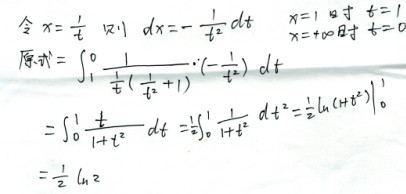 令 x=1/t 则 dx=-1/t² dt x=1时 t=1
x=+∞时 t=0
原式=∫₁⁰ 1/(1/t(1/t²+1))·(-1/t²) dt
=∫₀¹ t/(1+t²) dt =1/2∫₀¹ 1/(1+t²) dt²=1/2 ln(1+t²)|₀¹
=1/2 ln2